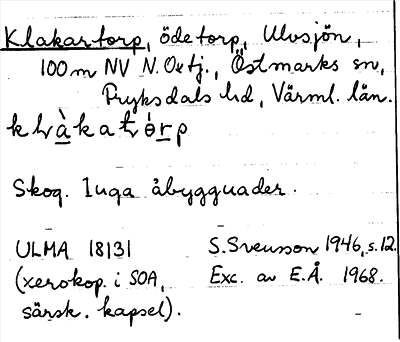 Klakartorp, ödetorp, Ulvsjön,
100 m NV N. Oxtj., Östmarks sn,
Fryksdals hd, Värml. län.
Skog. Inga åbyggnader.
ULMA 18131 S. Svensson 1946, s. 12.
(xerokop. i SOA, Exc. av E.Å. 1968.
särsk. kapsel).